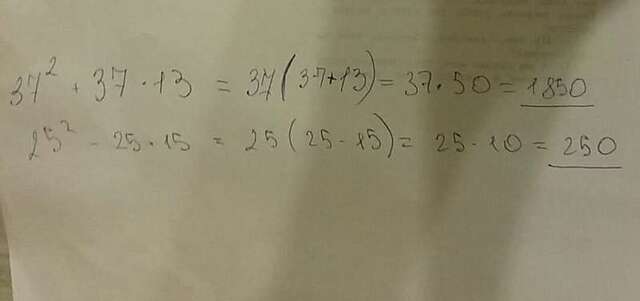 37² + 37 · 13 = 37(37+13) = 37 · 50 = 1850
25² - 25 · 15 = 25(25-15) = 25 · 10 = 250